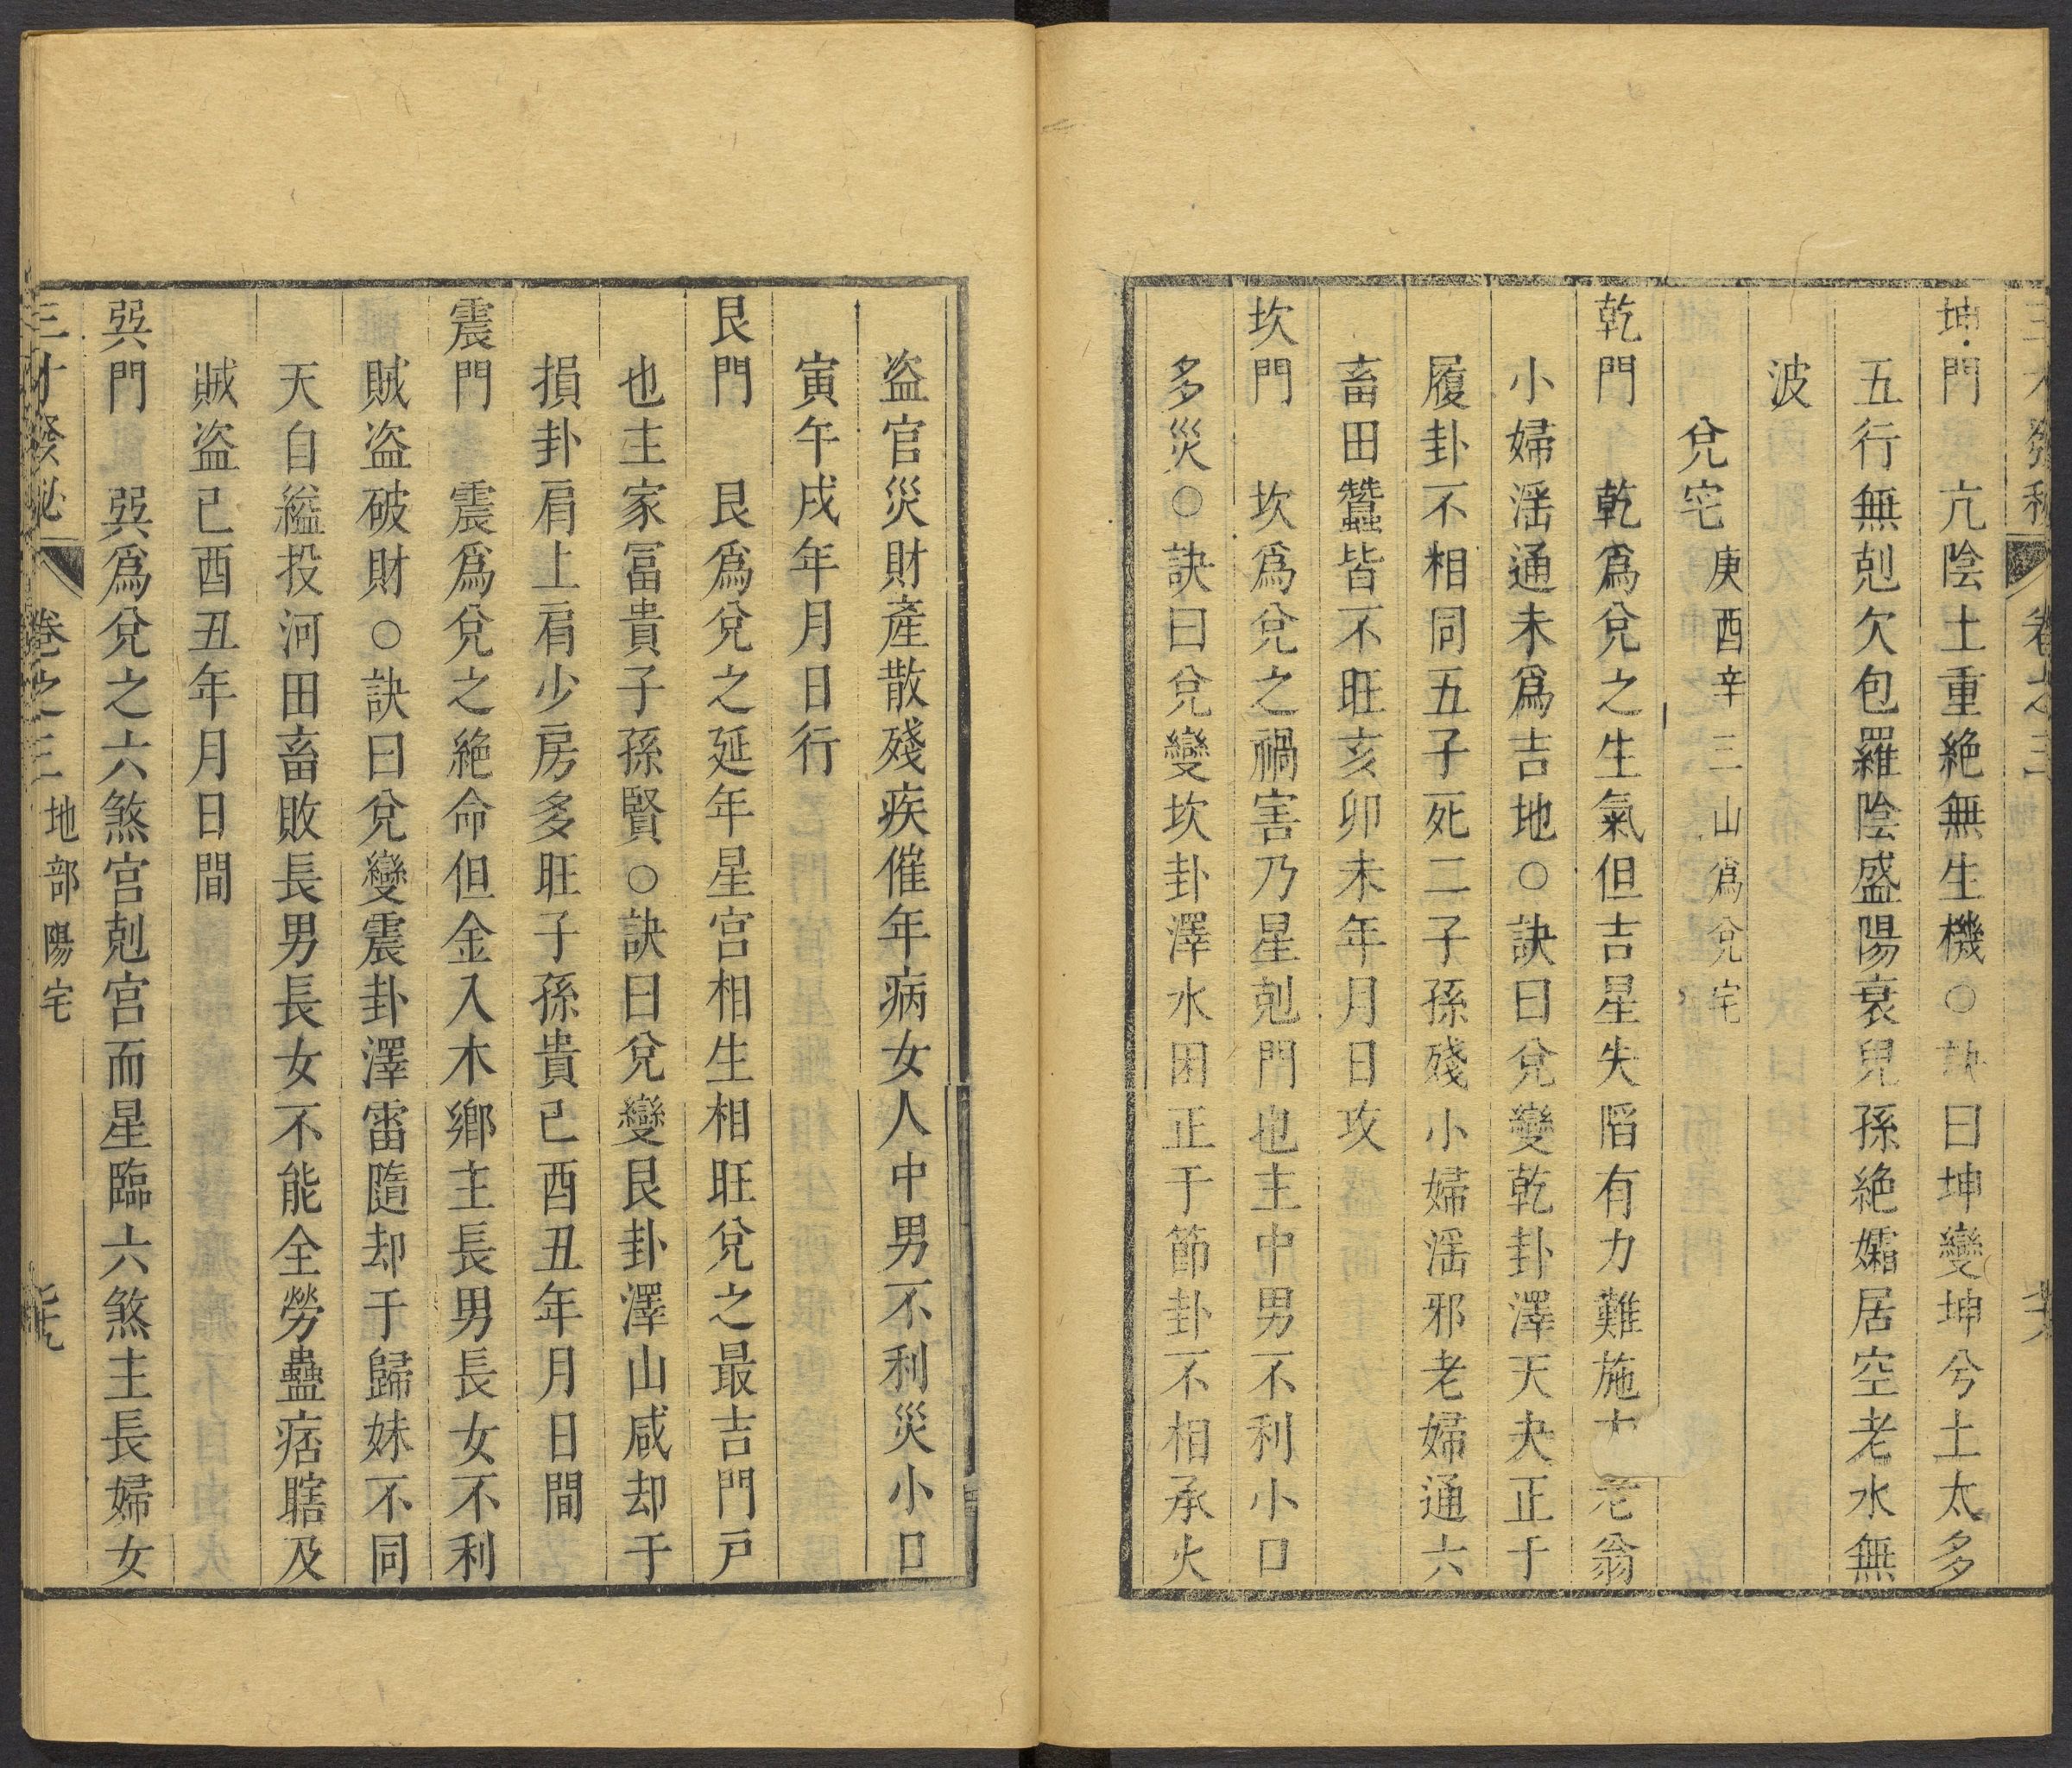 三才發秘 卷之三
坤門 亢陰土重絶無生機○訣曰坤變坤兮土太多
五行無剋欠包羅陰盛陽衰兒孫絶孀居空老水無
波
兌宅 庚酉辛三山爲兌宅
乾門 乾爲兌之生氣但吉星失陷有力難施 老翁
小婦滛通未爲吉地○訣曰兌變乾卦澤天夬正于
履卦不相同五子死二子孫殘小婦滛邪老婦通六
畜田蠶皆不旺亥卯未年月日攻
坎門 坎爲兌之禍害乃星剋門也主中男不利小口
多災○訣曰兌變坎卦澤水困正于節卦不相承火
盗官災財產散殘疾催年病女人中男不利災小口
寅午戌年月日行
艮門 艮爲兌之延年星宫相生相旺兌之最吉門戸
也主家冨貴子孫賢○訣曰兌變艮卦澤山咸却于
損卦肩上肩少房多旺子孫貴已酉丑年月日間
震門 震爲兌之絶命但金入木鄉主長男長女不利
賊盗破財○訣曰兌變震卦澤雷隨却于歸妹不同
天自縊投河田畜敗長男長女不能全勞蠱痞瞎及
賊盗已酉丑年月日間
巽門 巽爲兌之六煞宫剋宫而星臨六煞主長婦女
三才發秘 卷之三 地部 陽宅